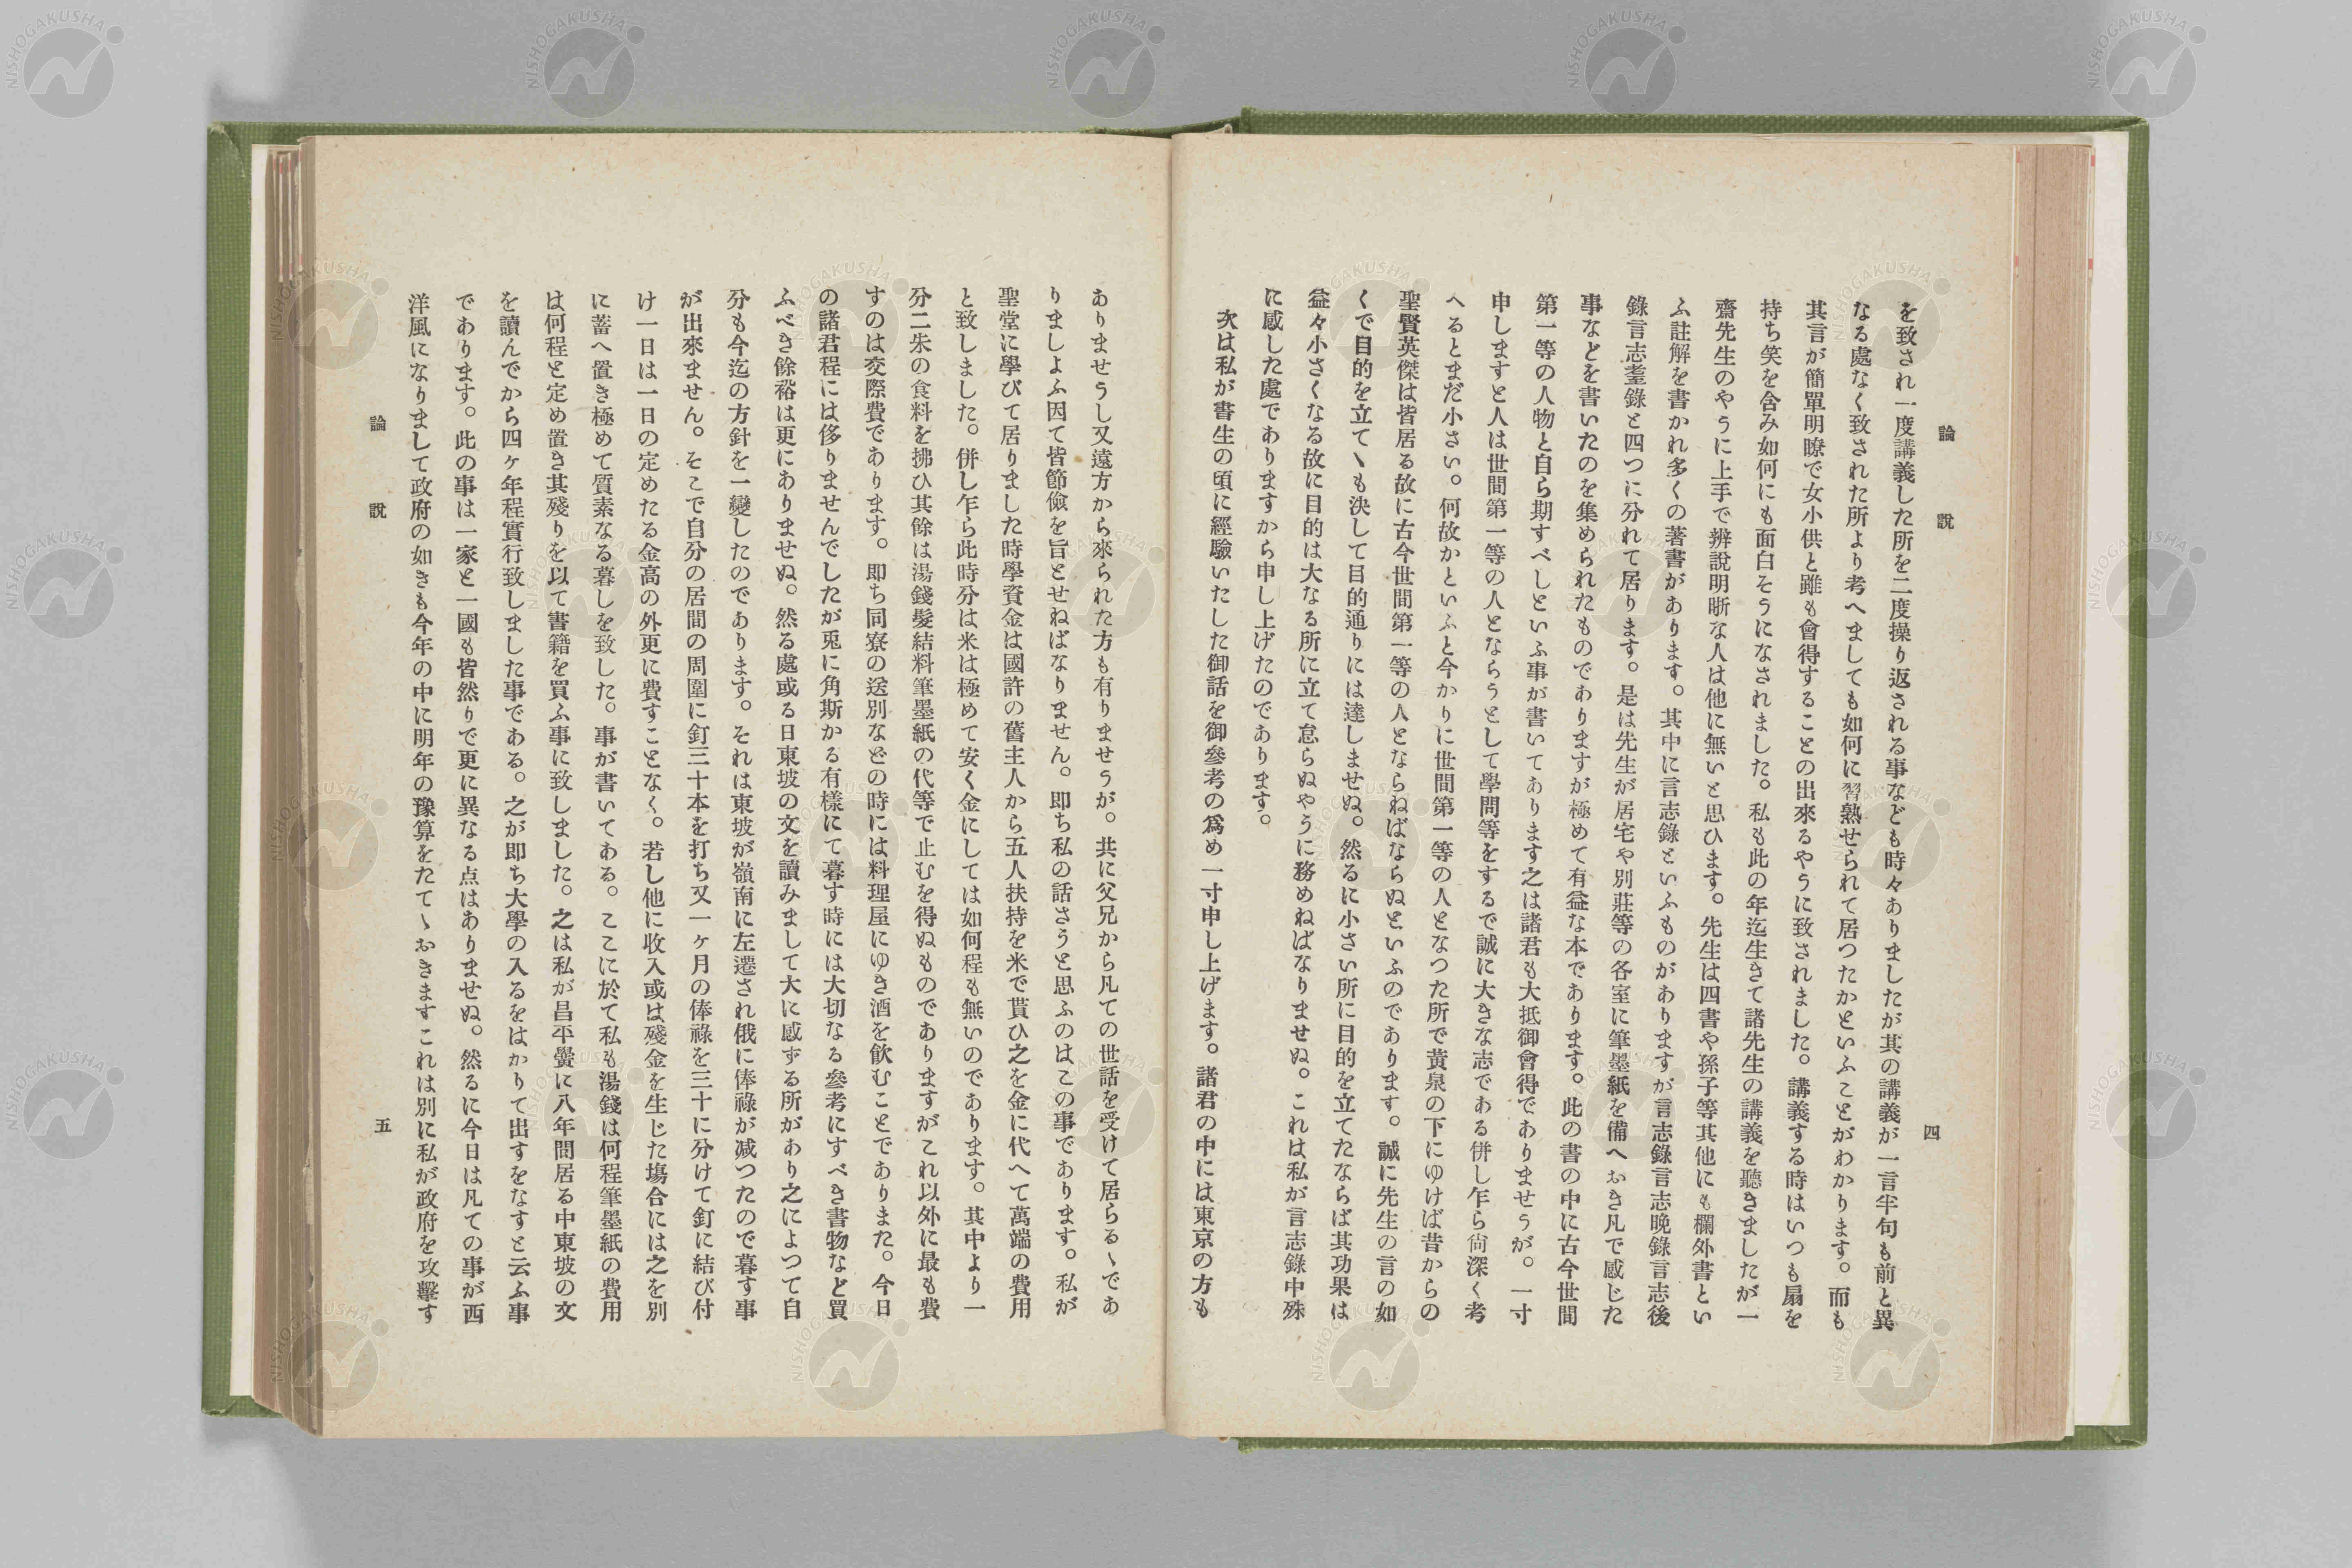 論說
四
を致され一度講義した所を二度操り返される事なども時々ありましたが其の講義が一言半句も前と異
なる處なく致された所より考へましても如何に習熟せられて居つたかといふことがわかります。而も
其言が簡單明瞭で女小供と雖も會得することの出來るやうに致されました。講義する時はいつも扇を
持ち笑を含み如何にも面白そうになされました。私も此の年迄生きて諸先生の講義を聽きましたが一
齋先生のやうに上手で辨說明晰な人は他に無いと思ひます。先生は四書や孫子等其他にも欄外書とい
ふ註解を書かれ多くの著書があります。其中に言志錄といふものがありますが言志錄言志晩錄言志後
錄言志耋錄と四つに分れて居ります。是は先生が居宅や別莊等の各室に筆墨紙を備へおき凡で感じた
事などを書いたのを集められたものでありますが極めて有益な本であります。此の書の中に古今世間
第一等の人物と自ら期すべしといふ事が書いてあります之は諸君も大抵御會得でありませうが。一寸
申しますと人は世間第一等の人とならうとして學問等をするで誠に大きな志である併し乍ら尙深く考
へるとまだ小さい。何故かといふと今かりに世間第一等の人となつた所で黄泉の下にゆけば昔からの
聖賢英傑は皆居る故に古今世間第一等の人とならねばならぬといふのであります。誠に先生の言の如
くで目的を立てゝも決して目的通りには達しませぬ。然るに小さい所に目的を立てたならば其功果は
益々小さくなる故に目的は大なる所に立て怠らぬやうに務めねばなりませぬ。これは私が言志錄中殊
に感した處でありますから申し上げたのであります。
次は私が書生の頃に經驗いたした御話を御參考の爲め一寸申し上げます。諸君の中には東京の方も
ありませうし又遠方から來られた方も有りませうが。共に父兄から凡ての世話を受けて居らるゝであ
りましよふ因て皆節儉を旨とせねばなりません。即ち私の話さうと思ふのはこの事であります。私が
聖堂に學びて居りました時學資金は國許の舊主人から五人扶持を米で貰ひ之を金に代へて萬端の費用
と致しました。併し乍ら此時分は米は極めて安く金にしては如何程も無いのであります。其中より一
分二朱の食料を拂ひ其餘は湯錢髮結料筆墨紙の代等で止むを得ぬものでありますがこれ以外に最も費
すのは交際費であります。即ち同寮の送別などの時には料理屋にゆき酒を飮むことでありまた。今日
の諸君程には侈りませんでしたが兎に角斯かる有樣にて暮す時には大切なる參考にすべき書物など買
ふべき餘裕は更にありませぬ。然る處或る日東坡の文を讀みまして大に感ずる所があり之によつて自
分も今迄の方針を一變したのであります。それは東坡が嶺南に左遷され俄に俸祿が減つたので暮す事
が出來ません。そこで自分の居間の周圍に釘三十本を打ち又一ヶ月の俸祿を三十に分けて釘に結び付
け一日は一日の定めたる金高の外更に費すことなく。若し他に收入或は殘金を生じた塲合には之を別
に蓄へ置き極めて質素なる暮しを致した。事が書いてある。ここに於て私も湯錢は何程筆墨紙の費用
は何程と定め置き其殘りを以て書籍を買ふ事に致しました。之は私が昌平黌に八年間居る中東坡の文
を讀んでから四ケ年程實行致しました事である。之が即ち大學の入るをはかりて出すをなすと云ふ事
であります。此の事は一家と一國も皆然りで更に異なる点はありませぬ。然るに今日は凡ての事が西
洋風になりまして政府の如きも今年の中に明年の豫算をたてゝおきますこれは別に私が政府を攻擊す
論說
五